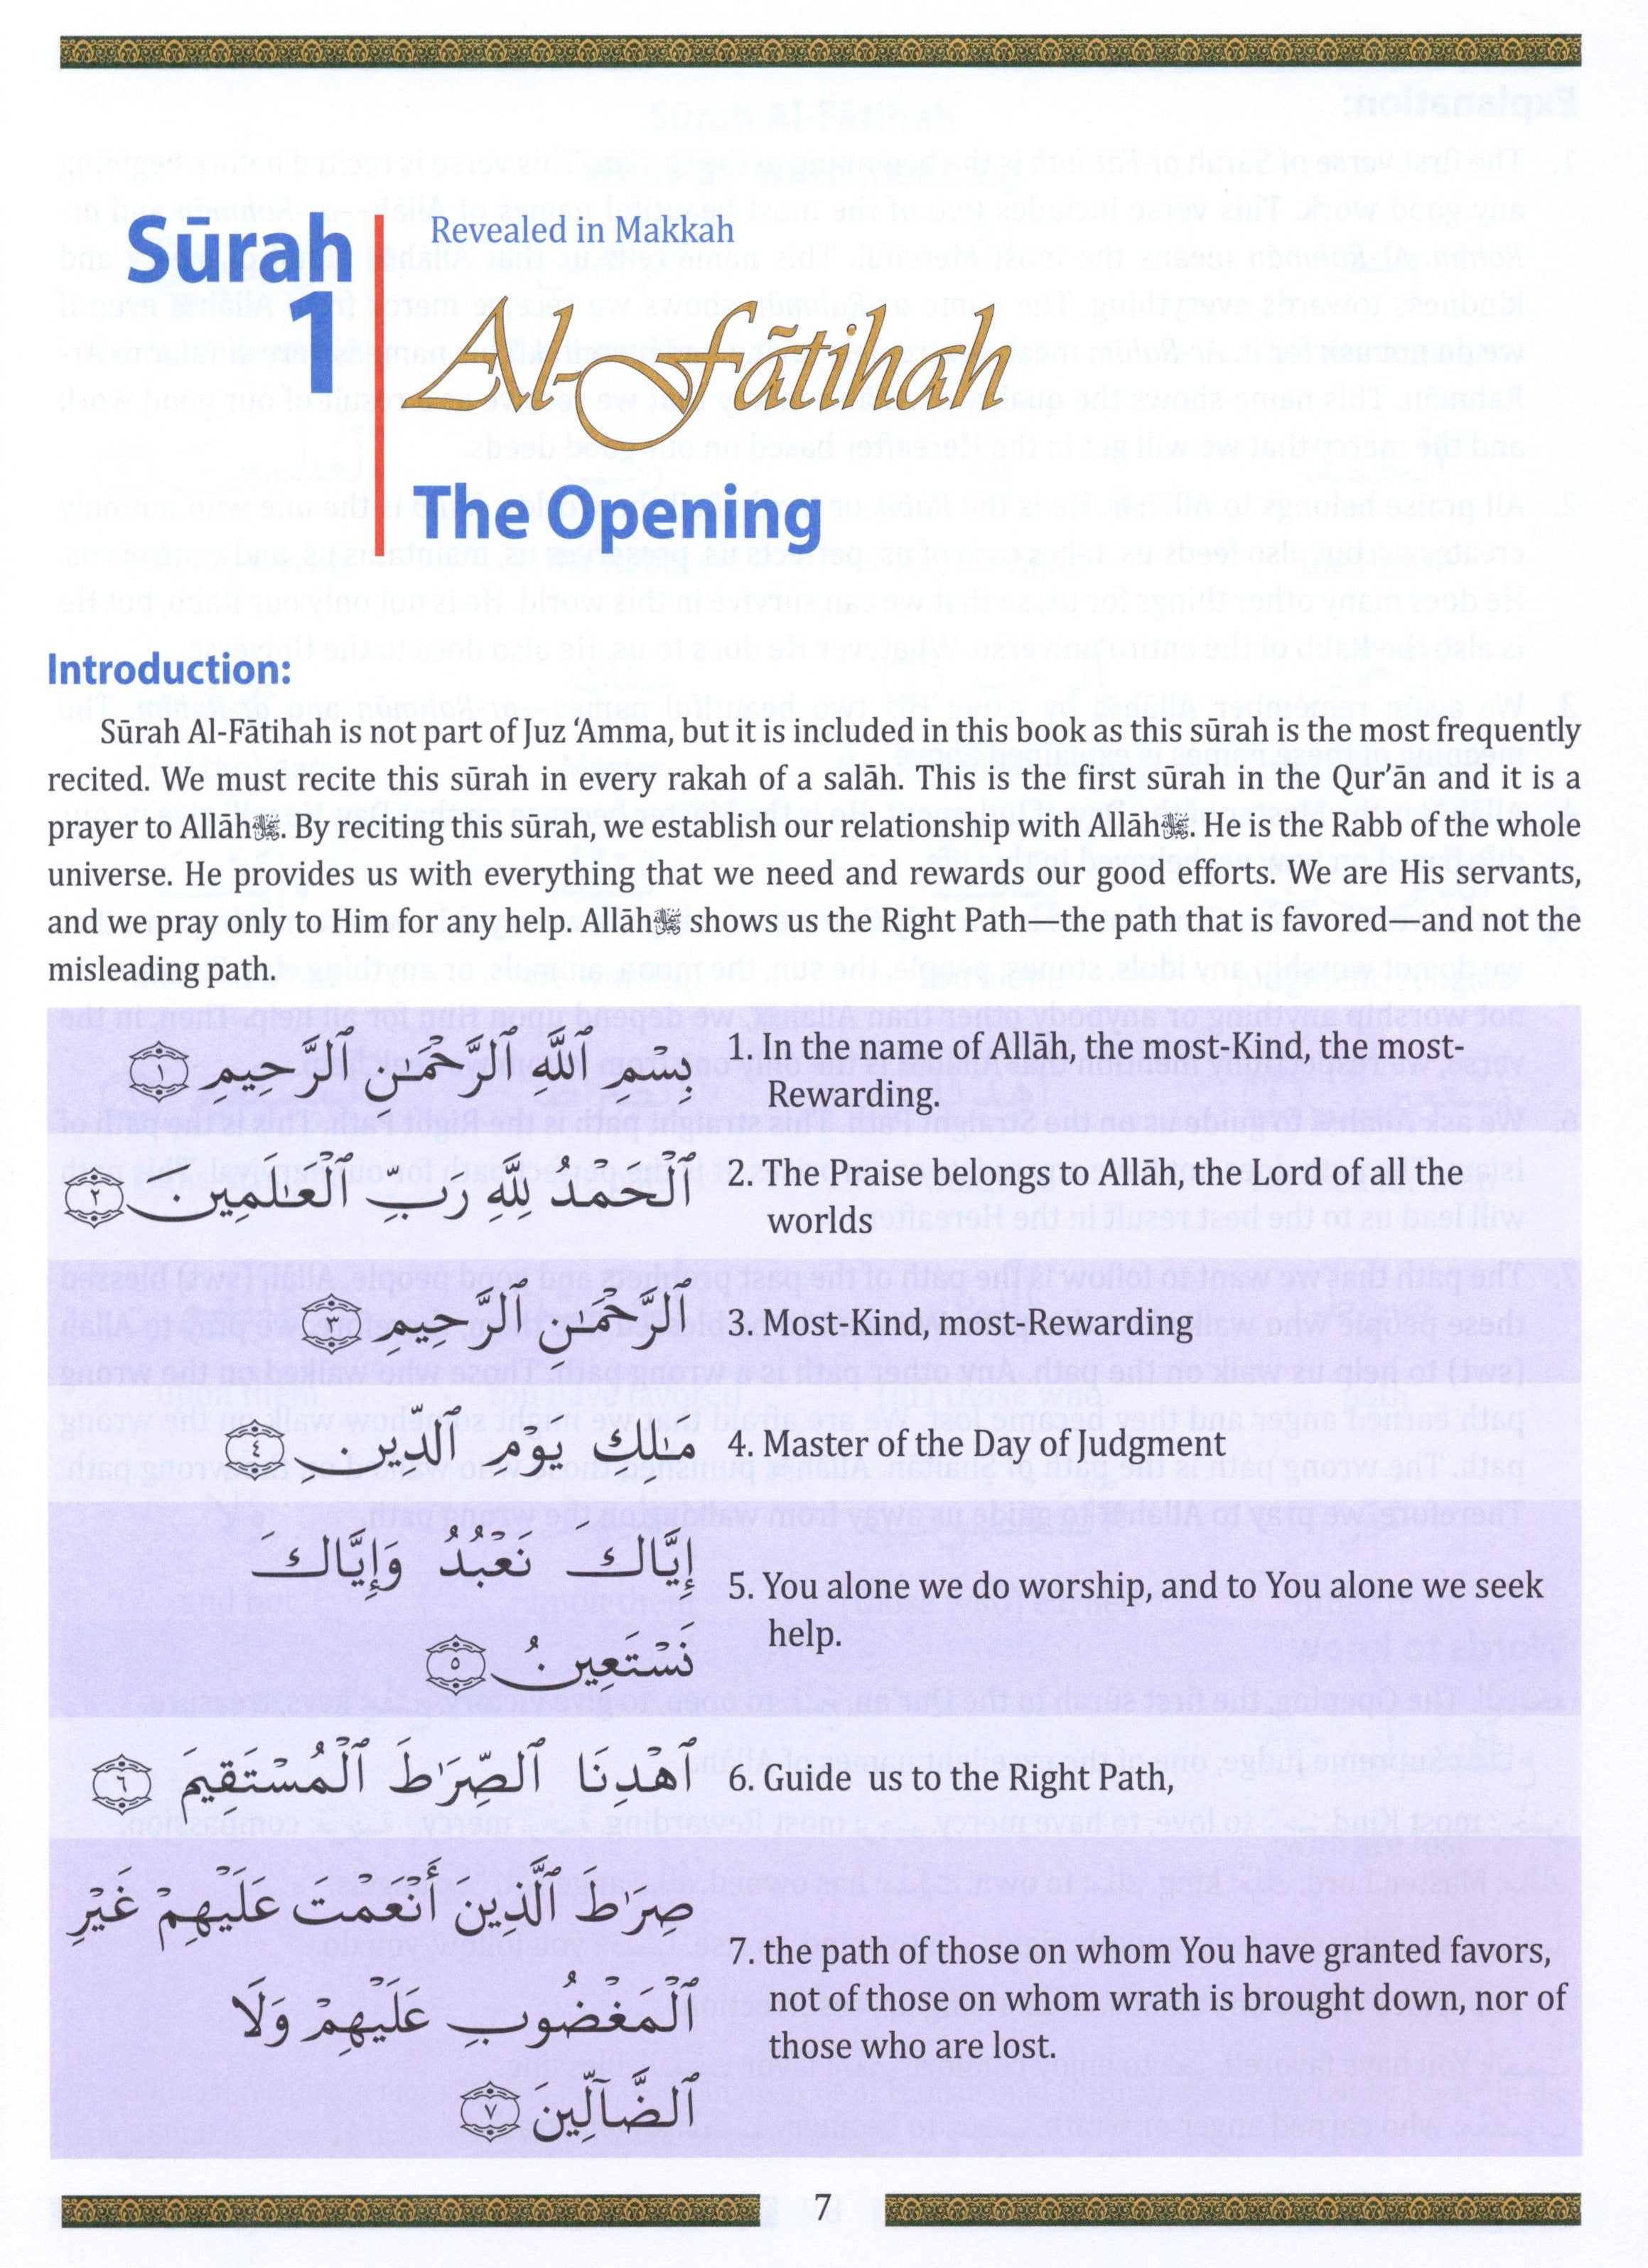 Sūrah
1
Revealed in Makkah
Al-Fātihah
The Opening
Introduction:
Sūrah Al-Fātihah is not part of Juz ‘Amma, but it is included in this book as this sūrah is the most frequently
recited. We must recite this sūrah in every rakah of a salāh. This is the first sūrah in the Qur’ān and it is a
prayer to Allāhﷻ. By reciting this sūrah, we establish our relationship with Allāhﷻ. He is the Rabb of the whole
universe. He provides us with everything that we need and rewards our good efforts. We are His servants,
and we pray only to Him for any help. Allāhﷻ shows us the Right Path—the path that is favored—and not the
misleading path.
بِسْمِ ٱللَّهِ ٱلرَّحْمَـٰنِ ٱلرَّحِيمِ ١
1. In the name of Allāh, the most-Kind, the most-
Rewarding.
ٱلْحَمْدُ لِلَّهِ رَبِّ ٱلْعَـٰلَمِينَ ٢
2. The Praise belongs to Allāh, the Lord of all the
worlds
ٱلرَّحْمَـٰنِ ٱلرَّحِيمِ ٣
3. Most-Kind, most-Rewarding
مَـٰلِكِ يَوْمِ ٱلدِّينِ ٤
4. Master of the Day of Judgment
إِيَّاكَ نَعْبُدُ وَإِيَّاكَ
نَسْتَعِينُ ٥
5. You alone we do worship, and to You alone we seek
help.
ٱهْدِنَا ٱلصِّرَٰطَ ٱلْمُسْتَقِيمَ ٦
6. Guide us to the Right Path,
صِرَٰطَ ٱلَّذِينَ أَنْعَمْتَ عَلَيْهِمْ غَيْرِ
ٱلْمَغْضُوبِ عَلَيْهِمْ وَلَا
ٱلضَّآلِّينَ ٧
7. the path of those on whom You have granted favors,
not of those on whom wrath is brought down, nor of
those who are lost.
7